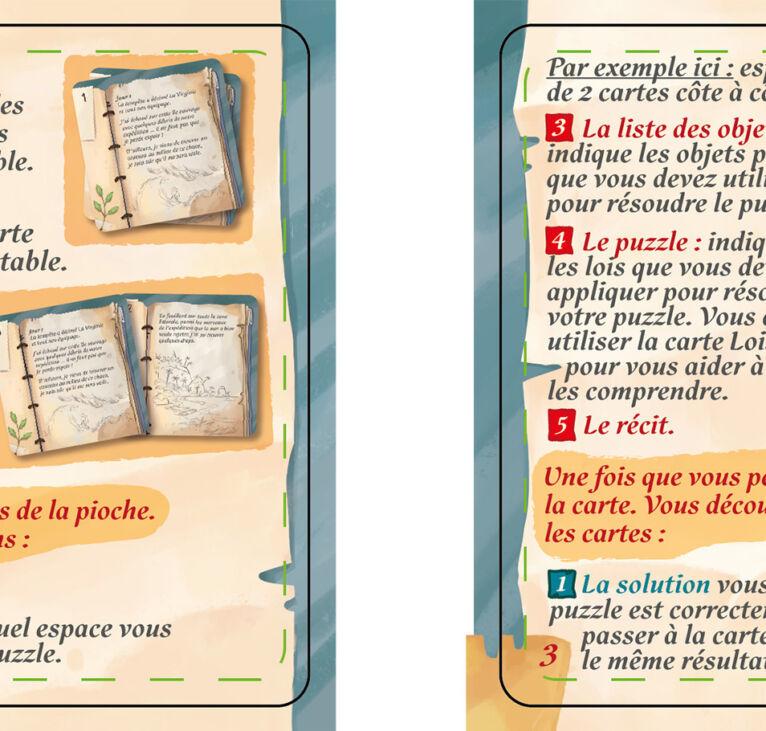 les
s
ble.
rte
table.
1
Jour 1
La tempête a décimé La Virginie
et tout son équipage.
J'ai échoué sur cette île sauvage
avec quelques débris de notre
expédition ... il ne faut pas que
je perde espoir !
D'ailleurs, je viens de trouver un
au milieu de ce chaos,
je suis sûr qu'il me sera utile.
Jour 1
La tempête a décimé La Virginie
et tout son équipage.
J'ai échoué sur cette île sauvage
avec quelques débris de notre
expédition ... il ne faut pas que
je perde espoir !
D'ailleurs, je viens de trouver un
au milieu de ce chaos,
je suis sûr qu'il me sera utile.
2
En fouillant sur toute la zone
parmi les morceaux
de l'expédition que la mer a bien
voulu rejeter, j'ai pu trouver
quelques
s de la pioche.
ns :
uel espace vous
uzzle.
Par exemple ici : esp
de 2 cartes côte à cô
3 La liste des obje
indique les objets p
que vous devez utili
pour résoudre le pu
4 Le puzzle : indiq
les lois que vous de
appliquer pour réso
votre puzzle. Vous
utiliser la carte Loi
pour vous aider à
les comprendre.
5 Le récit.
Une fois que vous pe
la carte. Vous décou
les cartes :
1 La solution vous
puzzle est correcte
passer à la carte
3 le même résulta